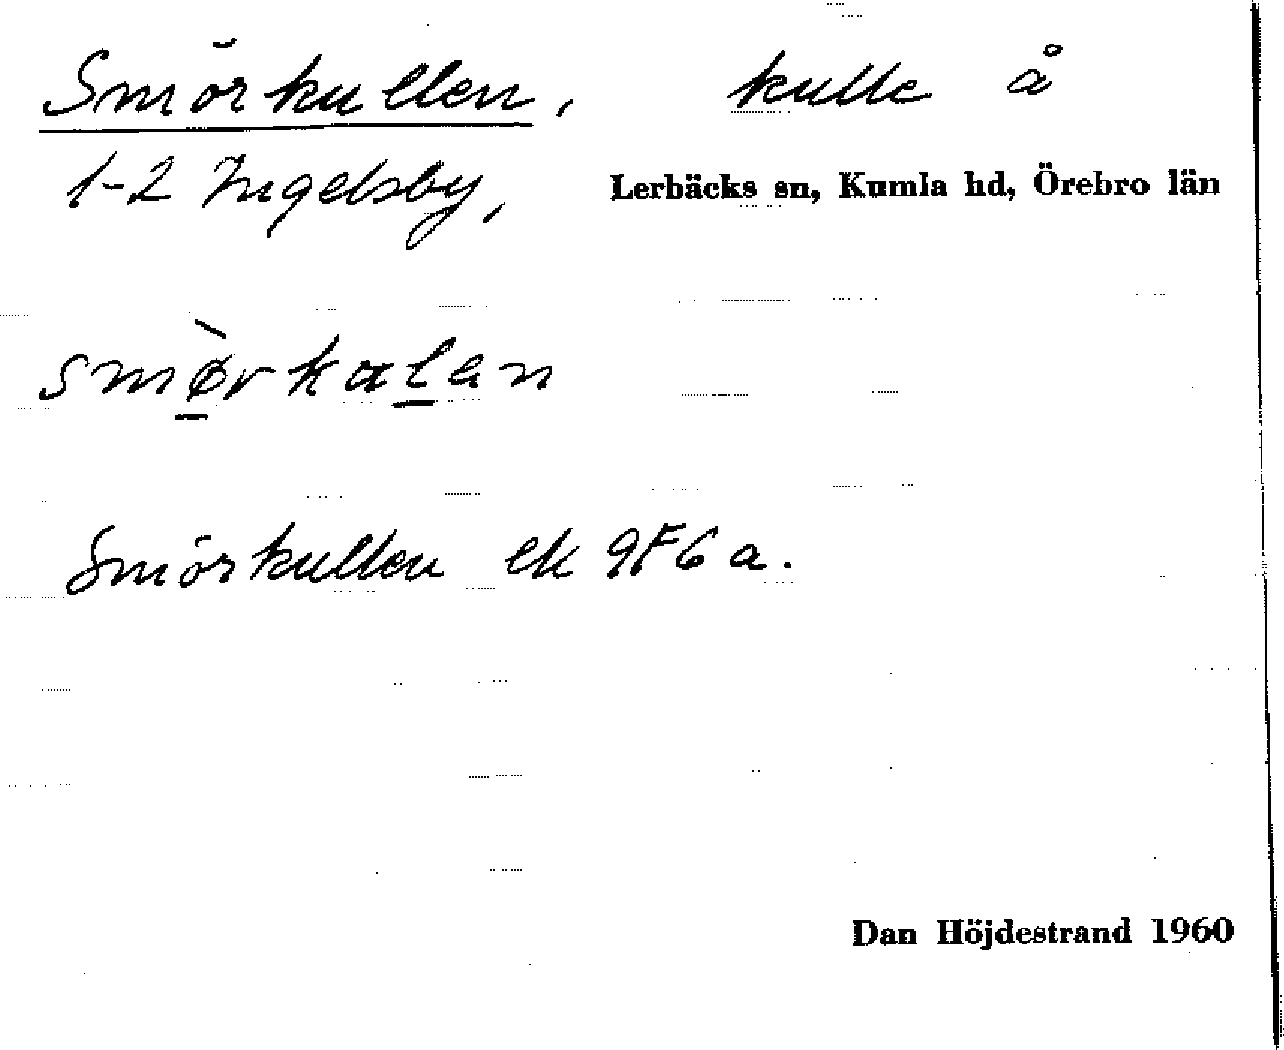 Smörkullen, kulle å
1-2 Ingelsby, Lerbäcks sn, Kumla hd, Örebro län
smø̱̀rkaḻan
Smörkullen ek 9F6a.
Dan Höjdestrand 1960